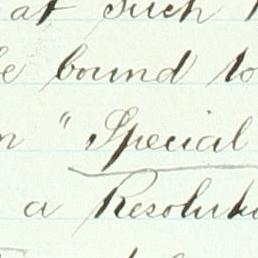 at such
be bound to
n "Special
a Resolutio